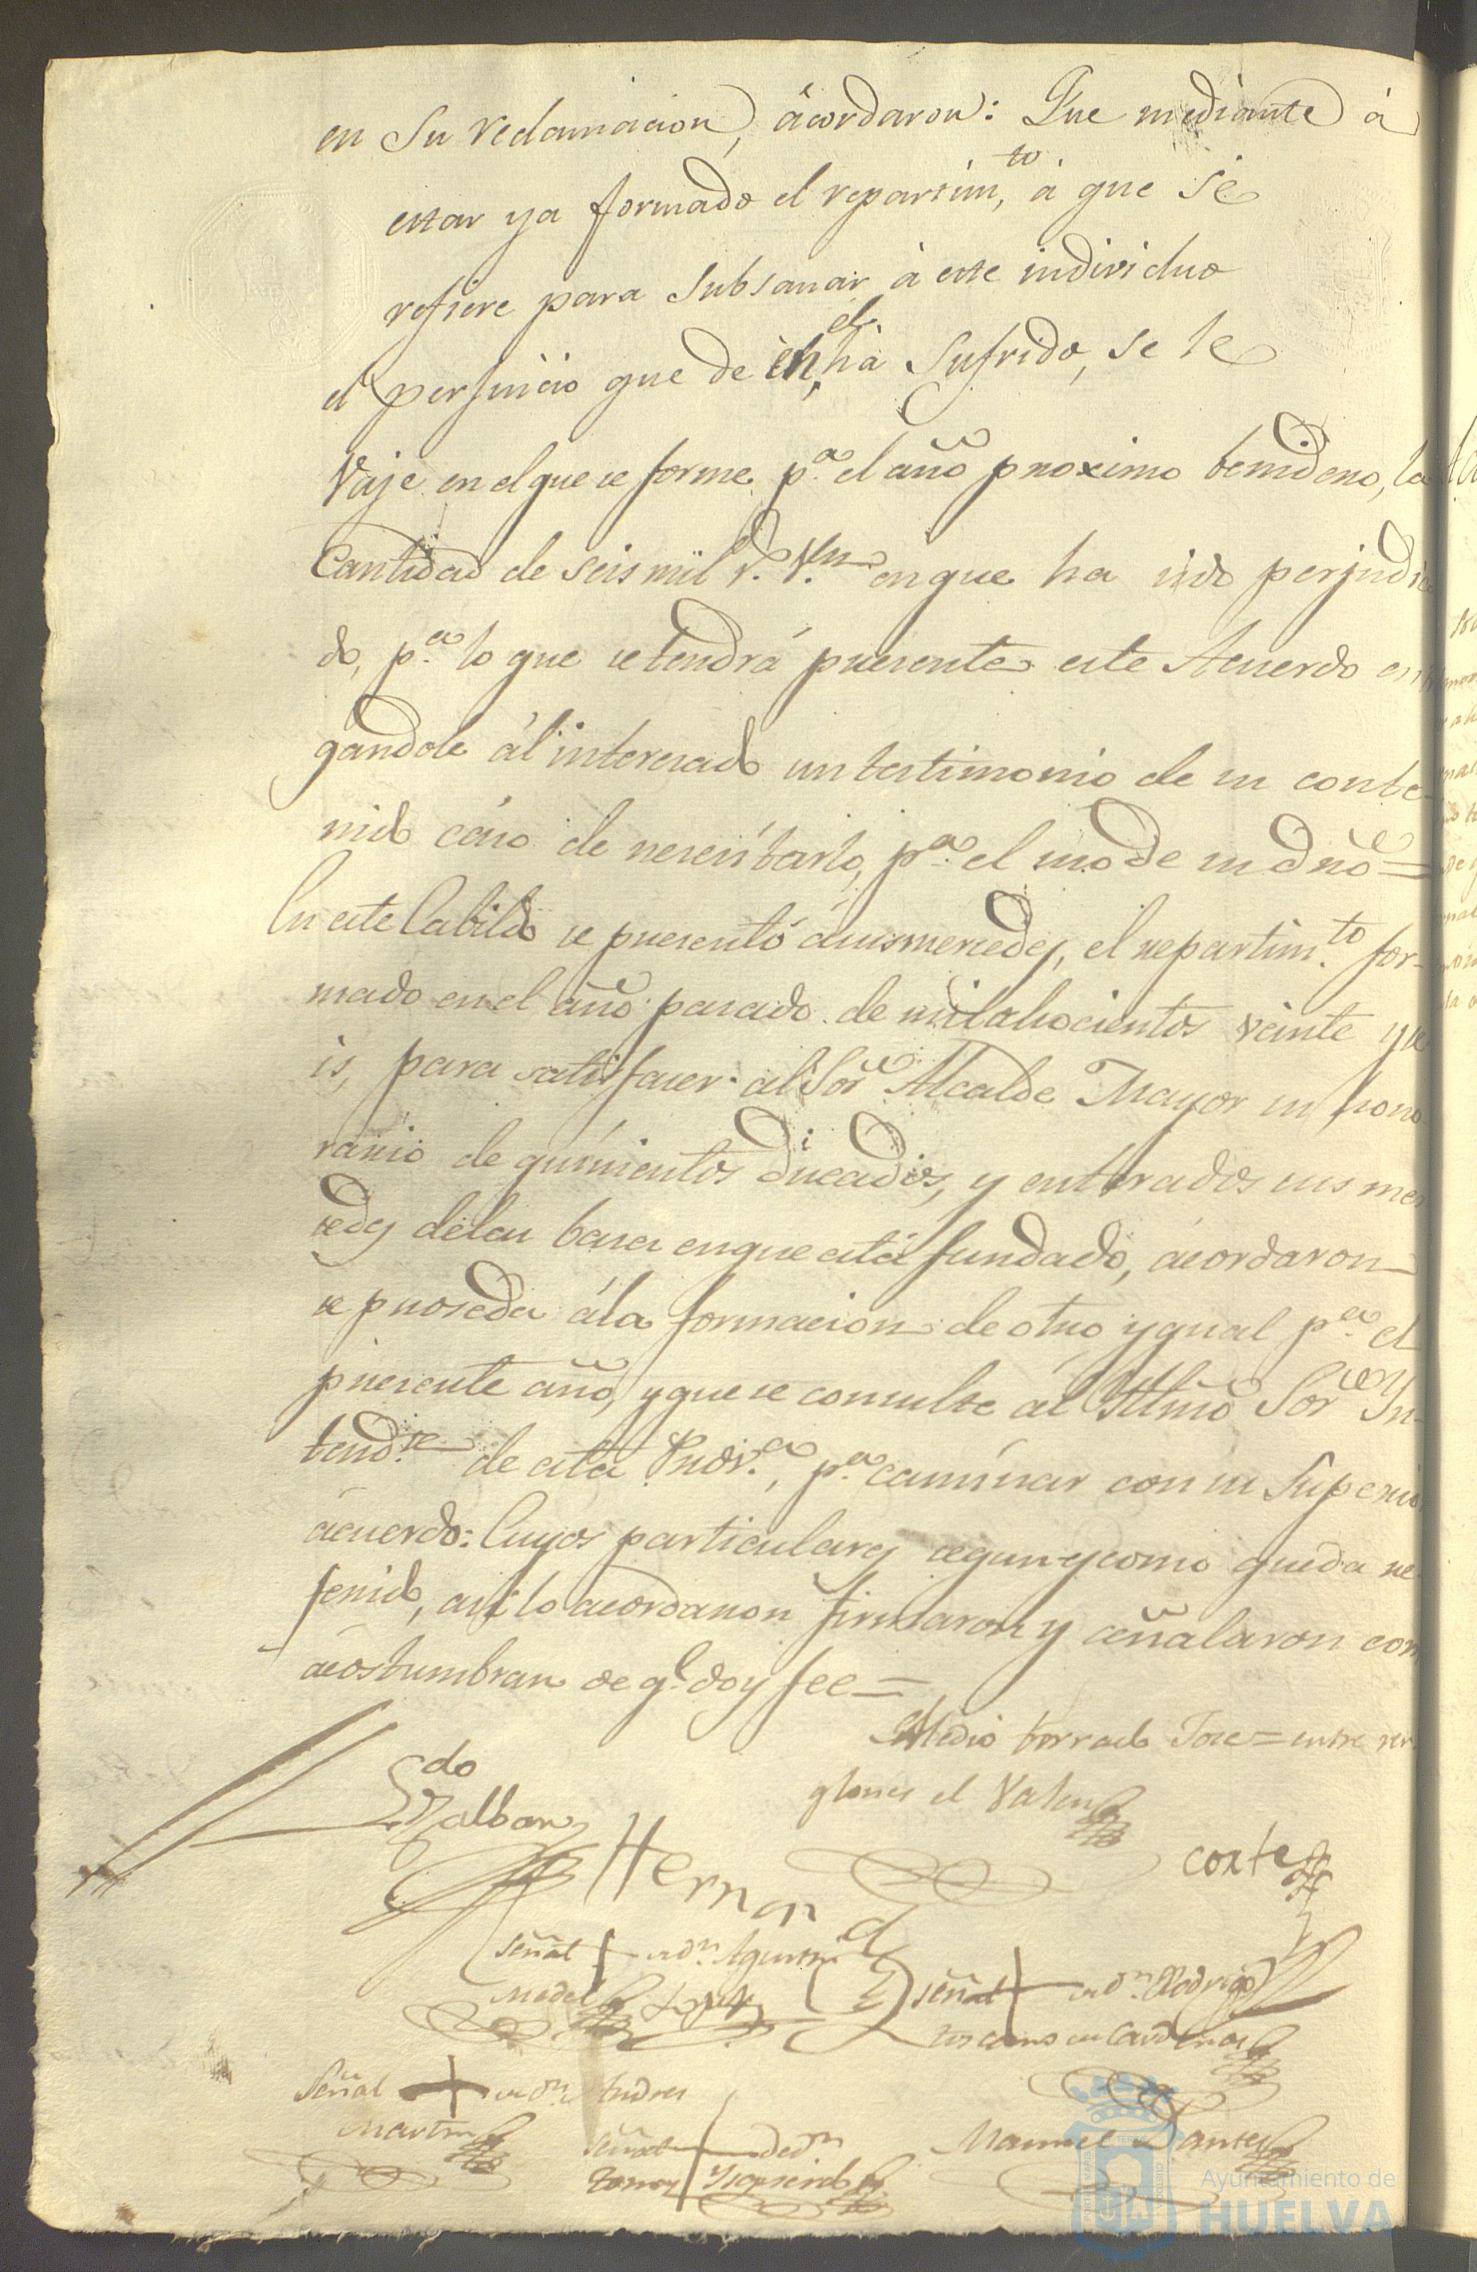 en su reclamacion, ácordaron: Que mediante á
estar ya formado el repartim.to á que se
refiere para subsanar á este individuo
el perjuicio que de el há sufrido, se le
vaje en el que se forme p.a el año proximo benidero, la
Cantidad de seis mil r.s v.n en que ha sido perjudica
do, p.a lo que se tendrá presente este Acuerdo
gandole ál interesado un testimonio de su conte-
nido cáso de nesesitarlo, p.a el uso de su dño=
En este Cabildo se presentó ásus mercedes, el repartim.to for-
mado en el año pasado de mil ahocientos veinte y se
is, para satisfacer al Sor Alcalde Mayor su hono
rario de quinientos ducados, y enterados sus mer
sedes dela basa enque está fundado, ácordaron
se proseda ála formacion de otro ygual p.a el
presente año, y que se consulte ál Yltmô Sor Yn-
tend.te de esta Prov.a, p.a caminar con su Superior
ácuerdo: Cuyos particulares segun y como queda re-
ferido, así lo acordaron firmaron y señalaron como
ácostumbran de q.e doy fee=
Medio borrado = entre ren-
glones el Valen
L.do
Galban
Hernand
ez
Cortes
señal + de d.n Agustin
señal + de d.n Rodrigo
toscano de Cardenas
Señal + de d.n Andres
Martin
señal + de d.n
tomas Yzquierdo
Manuel de
Ayuntamiento de
HUELVA